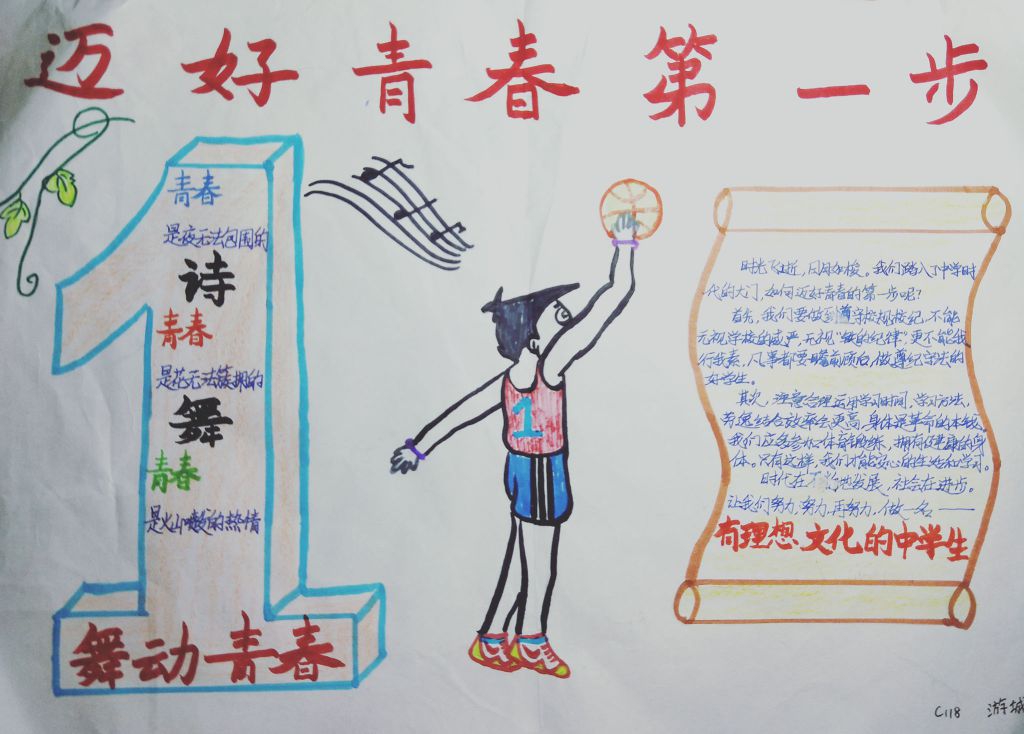 迈好青春第一步
青春
是夜无法包围的
诗
青春
是花无法簇拥的
舞
青春
是火山喷的热情
舞动青春
1
时光飞逝，日月如梭。我们踏入了中学时
代的大门，如何迈好青春的第一步呢？
首先，我们要做到遵守校规校纪，不能
无视学校的威严，无视“铁的纪律”，更不能我
行我素，凡事都要瞻前顾后，做遵纪守法的
好学生。
其次，注意合理运用学习时间，学习方法，
劳逸结合效率会更高，身体是革命的本钱。
我们应多参加体育锻炼，拥有健康的身
体。只有这样，我们才能安心的生活和学习。
时代在不地发展，社会在进步。
让我们努力，努力，再努力，做一名——
有理想、文化的中学生
C118 游城